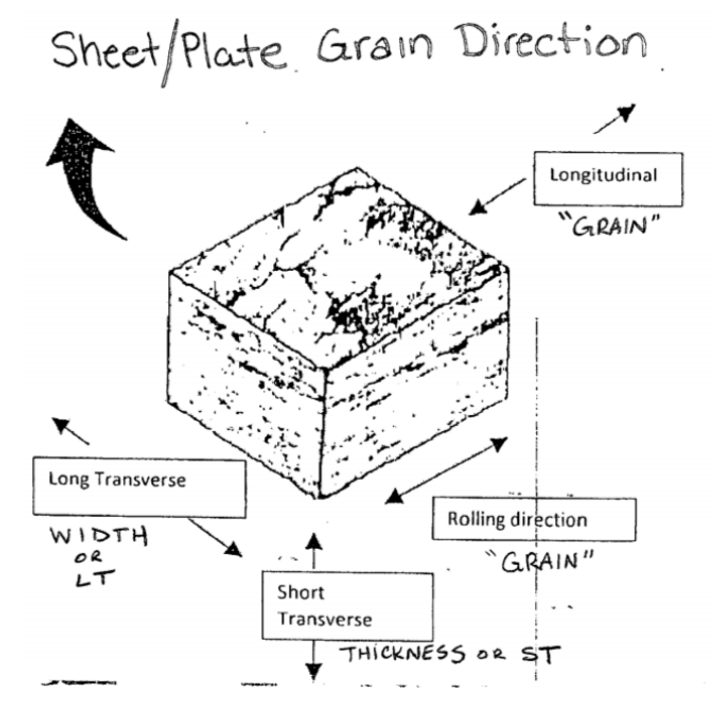 Sheet/Plate Grain Direction
Longitudinal
"GRAIN"
Long Transverse
WIDTH
OR
LT
Rolling direction
"GRAIN"
Short
Transverse
THICKNESS OR ST